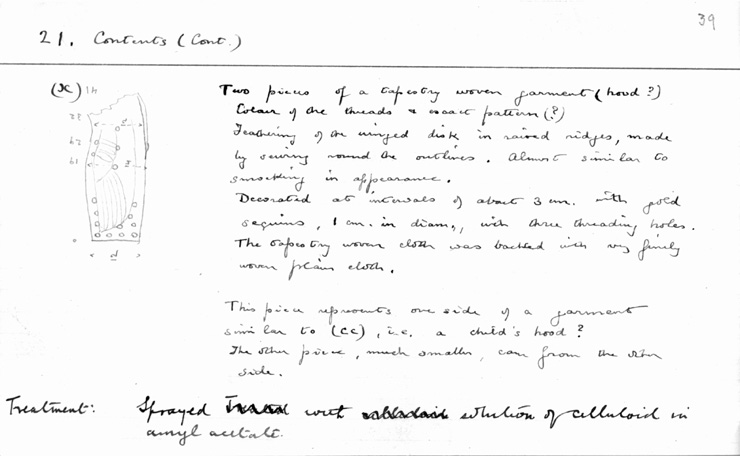 39
21. Contents (Cont.)
(x)
Two pieces of a tapestry woven garment (hood?)
Colour of the threads & exact pattern (?)
Feathering of the winged disk in raised ridges, made
by sewing round the outlines. Almost similar to
smocking in appearance.
Decorated at intervals of about 3 cm. with gold
sequins, 1 cm. in diam., with three threading holes.
The tapestry woven cloth was backed with very finely
woven plain cloth.
This piece represents one side of a garment
similar to (cc), i.e. a child's hood?
The other piece, much smaller, came from the other
side.
Treatment: Sprayed with solution of celluloid in
amyl acetate.